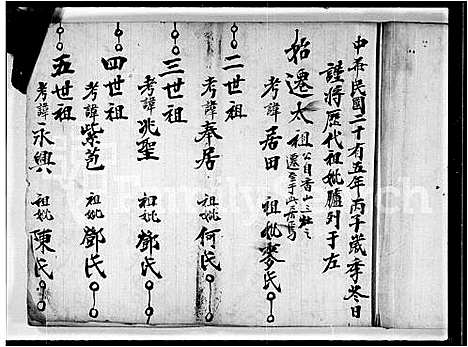 中華民國二十有五年丙子歲季冬日
謹將歷代祖妣臚列于左
始遷太祖 公自香山三灶
遷至于此居焉
考諱居田 祖妣麥氏
二世祖
考諱奉居 祖妣何氏
三世祖
考諱兆聖 祖妣鄧氏
四世祖
考諱紫芭 祖妣鄧氏
五世祖
考諱永興 祖妣陳氏